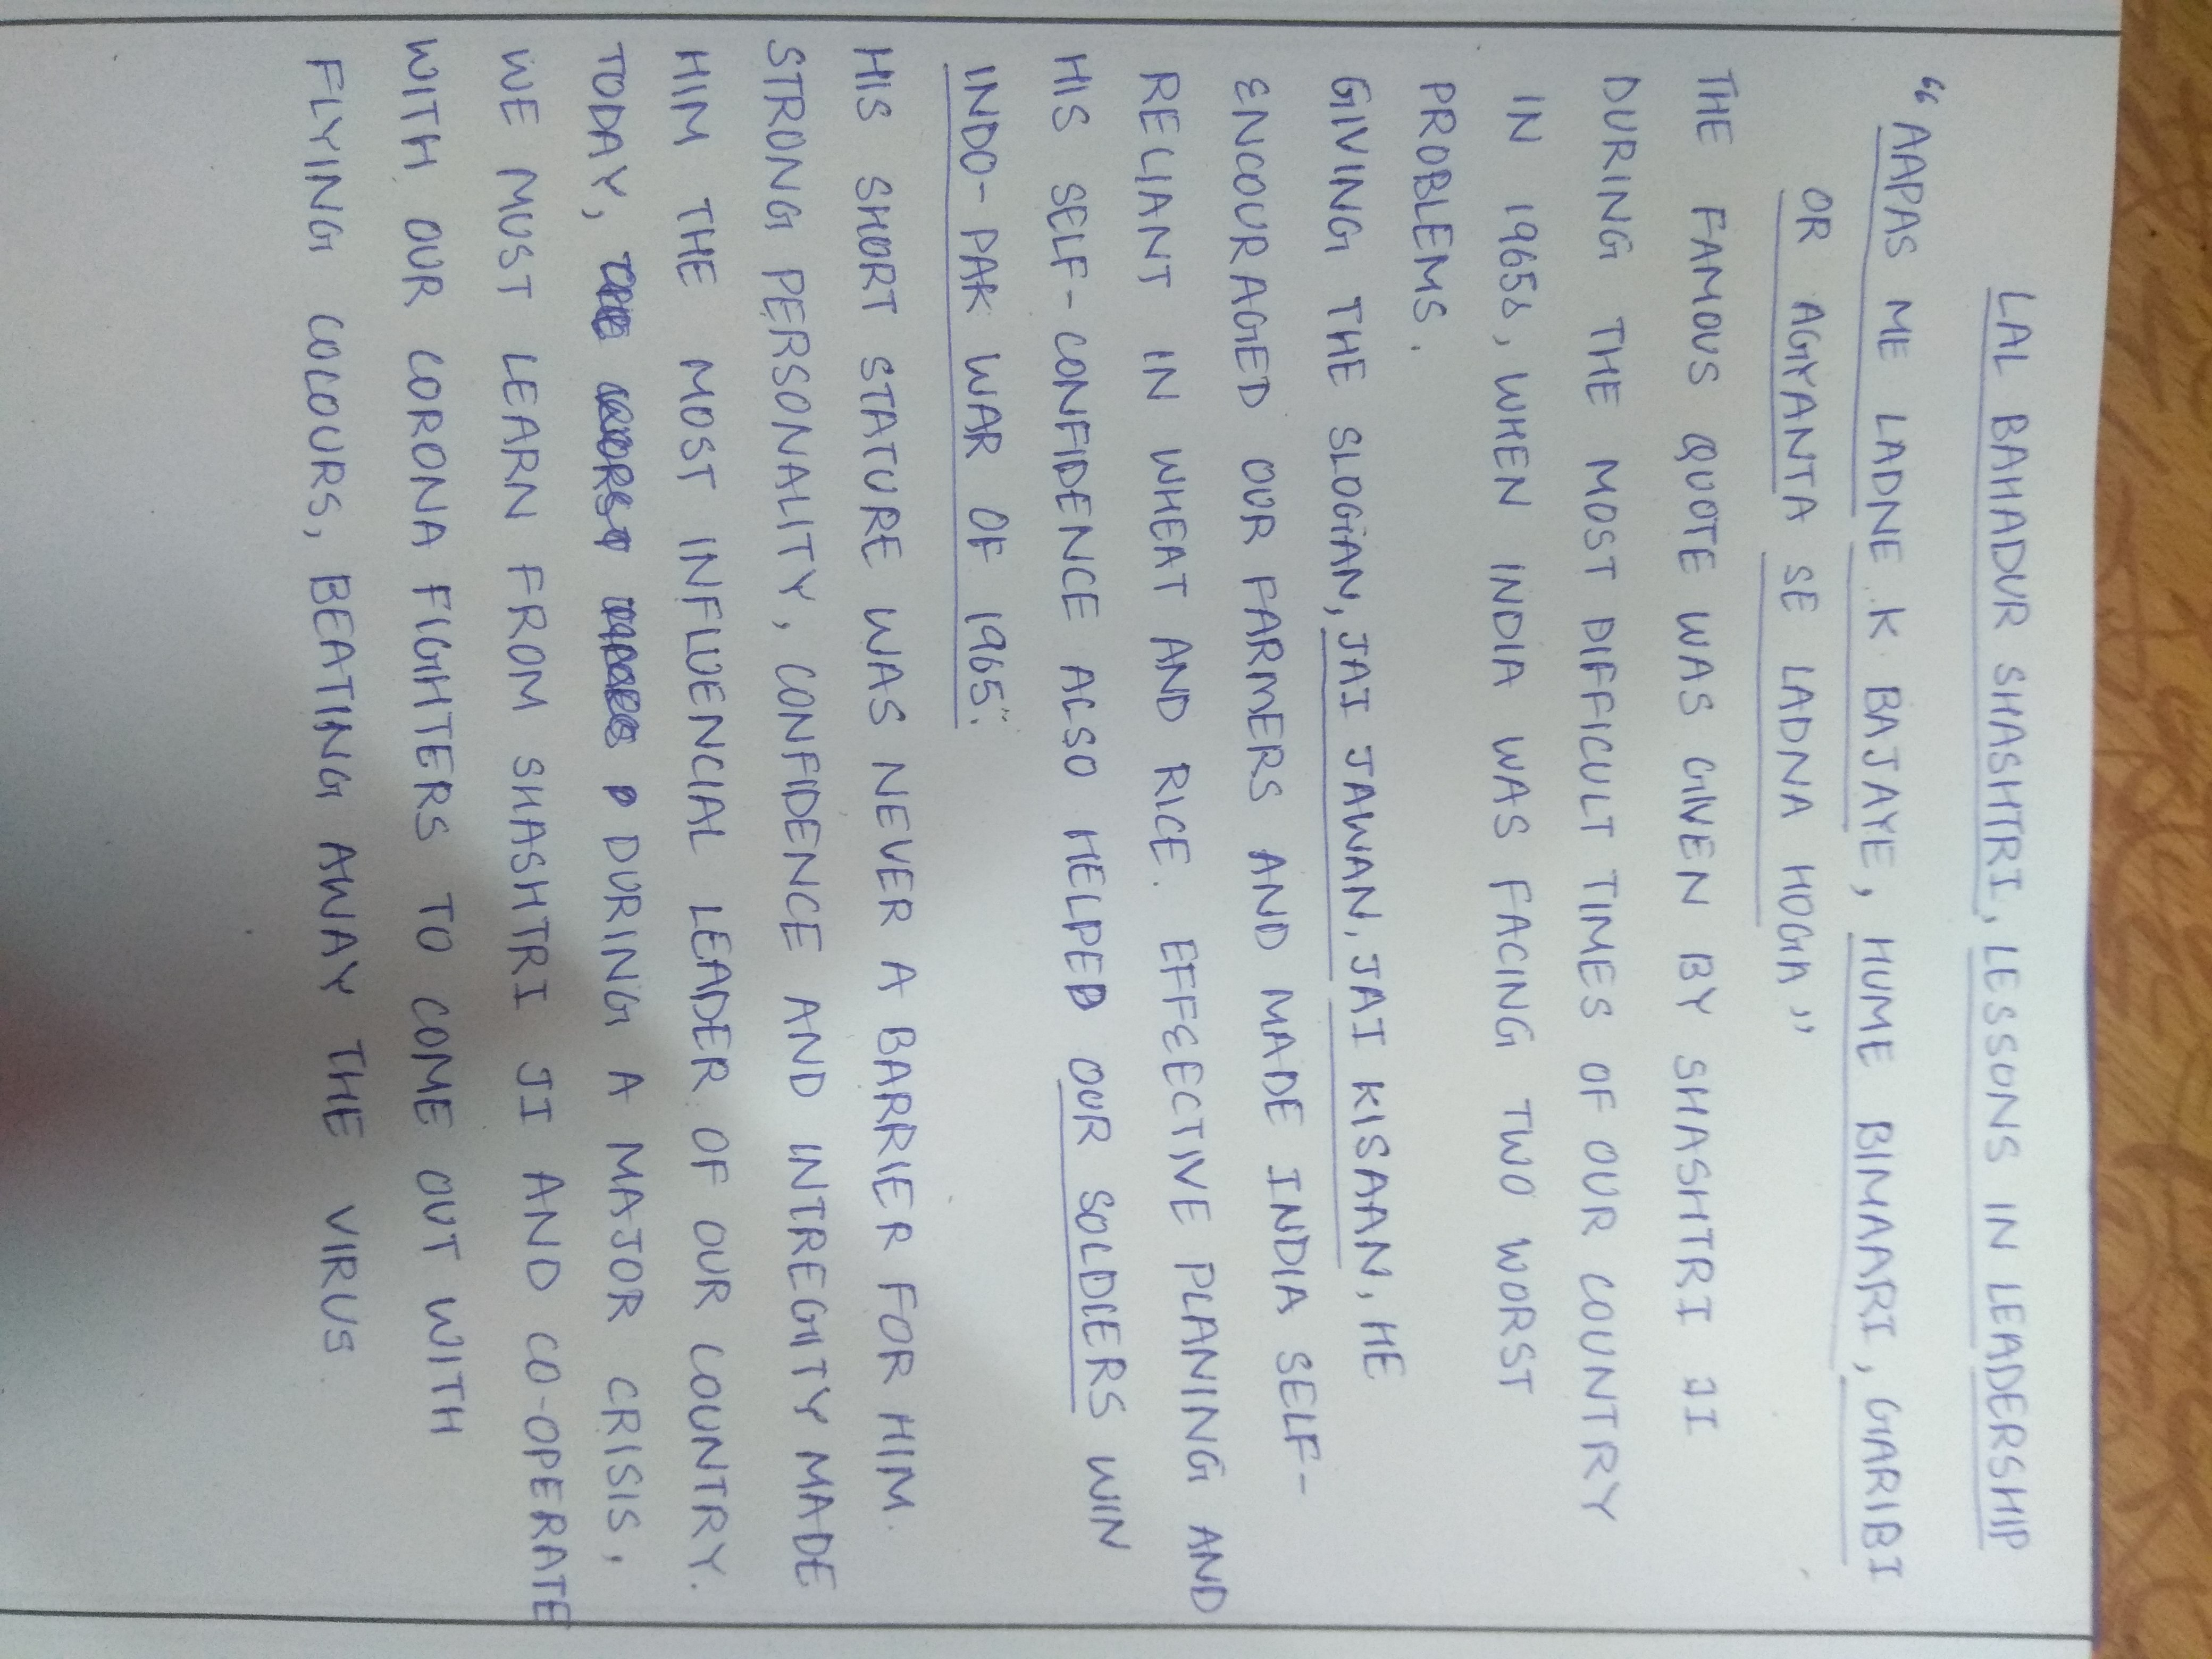 LAL BAHADUR SHASHTRI, LESSONS IN LEADERSHIP
"AAPAS ME LADNE K BAJAYE, HUME BIMAARI, GARIBI
OR AGYANTA SE LADNA HOGA"
THE FAMOUS QUOTE WAS GIVEN BY SHASHTRI JI
DURING THE MOST DIFFICULT TIMES OF OUR COUNTRY
IN 1965s, WHEN INDIA WAS FACING TWO WORST
PROBLEMS.
GIVING THE SLOGAN, JAI JAWAN, JAI KISAAN, HE
ENCOURAGED OUR FARMERS AND MADE INDIA SELF-
RELIANT IN WHEAT AND RICE. EFFECTIVE PLANING AND
HIS SELF-CONFIDENCE ALSO HELPED OUR SOLDIERS WIN
INDO-PAK WAR OF 1965".
HIS SHORT STATURE WAS NEVER A BARRIER FOR HIM.
STRONG PERSONALITY, CONFIDENCE AND INTREGITY MADE
HIM THE MOST INFLUENCIAL LEADER OF OUR COUNTRY.
TODAY, DURING A MAJOR CRISIS,
WE MUST LEARN FROM SHASHTRI JI AND CO-OPERATE
WITH OUR CORONA FIGHTERS TO COME OUT WITH
FLYING COLOURS, BEATING AWAY THE VIRUS